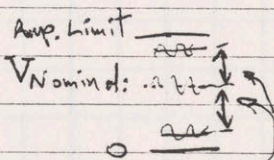 Amp. Limit
VNominal:
0